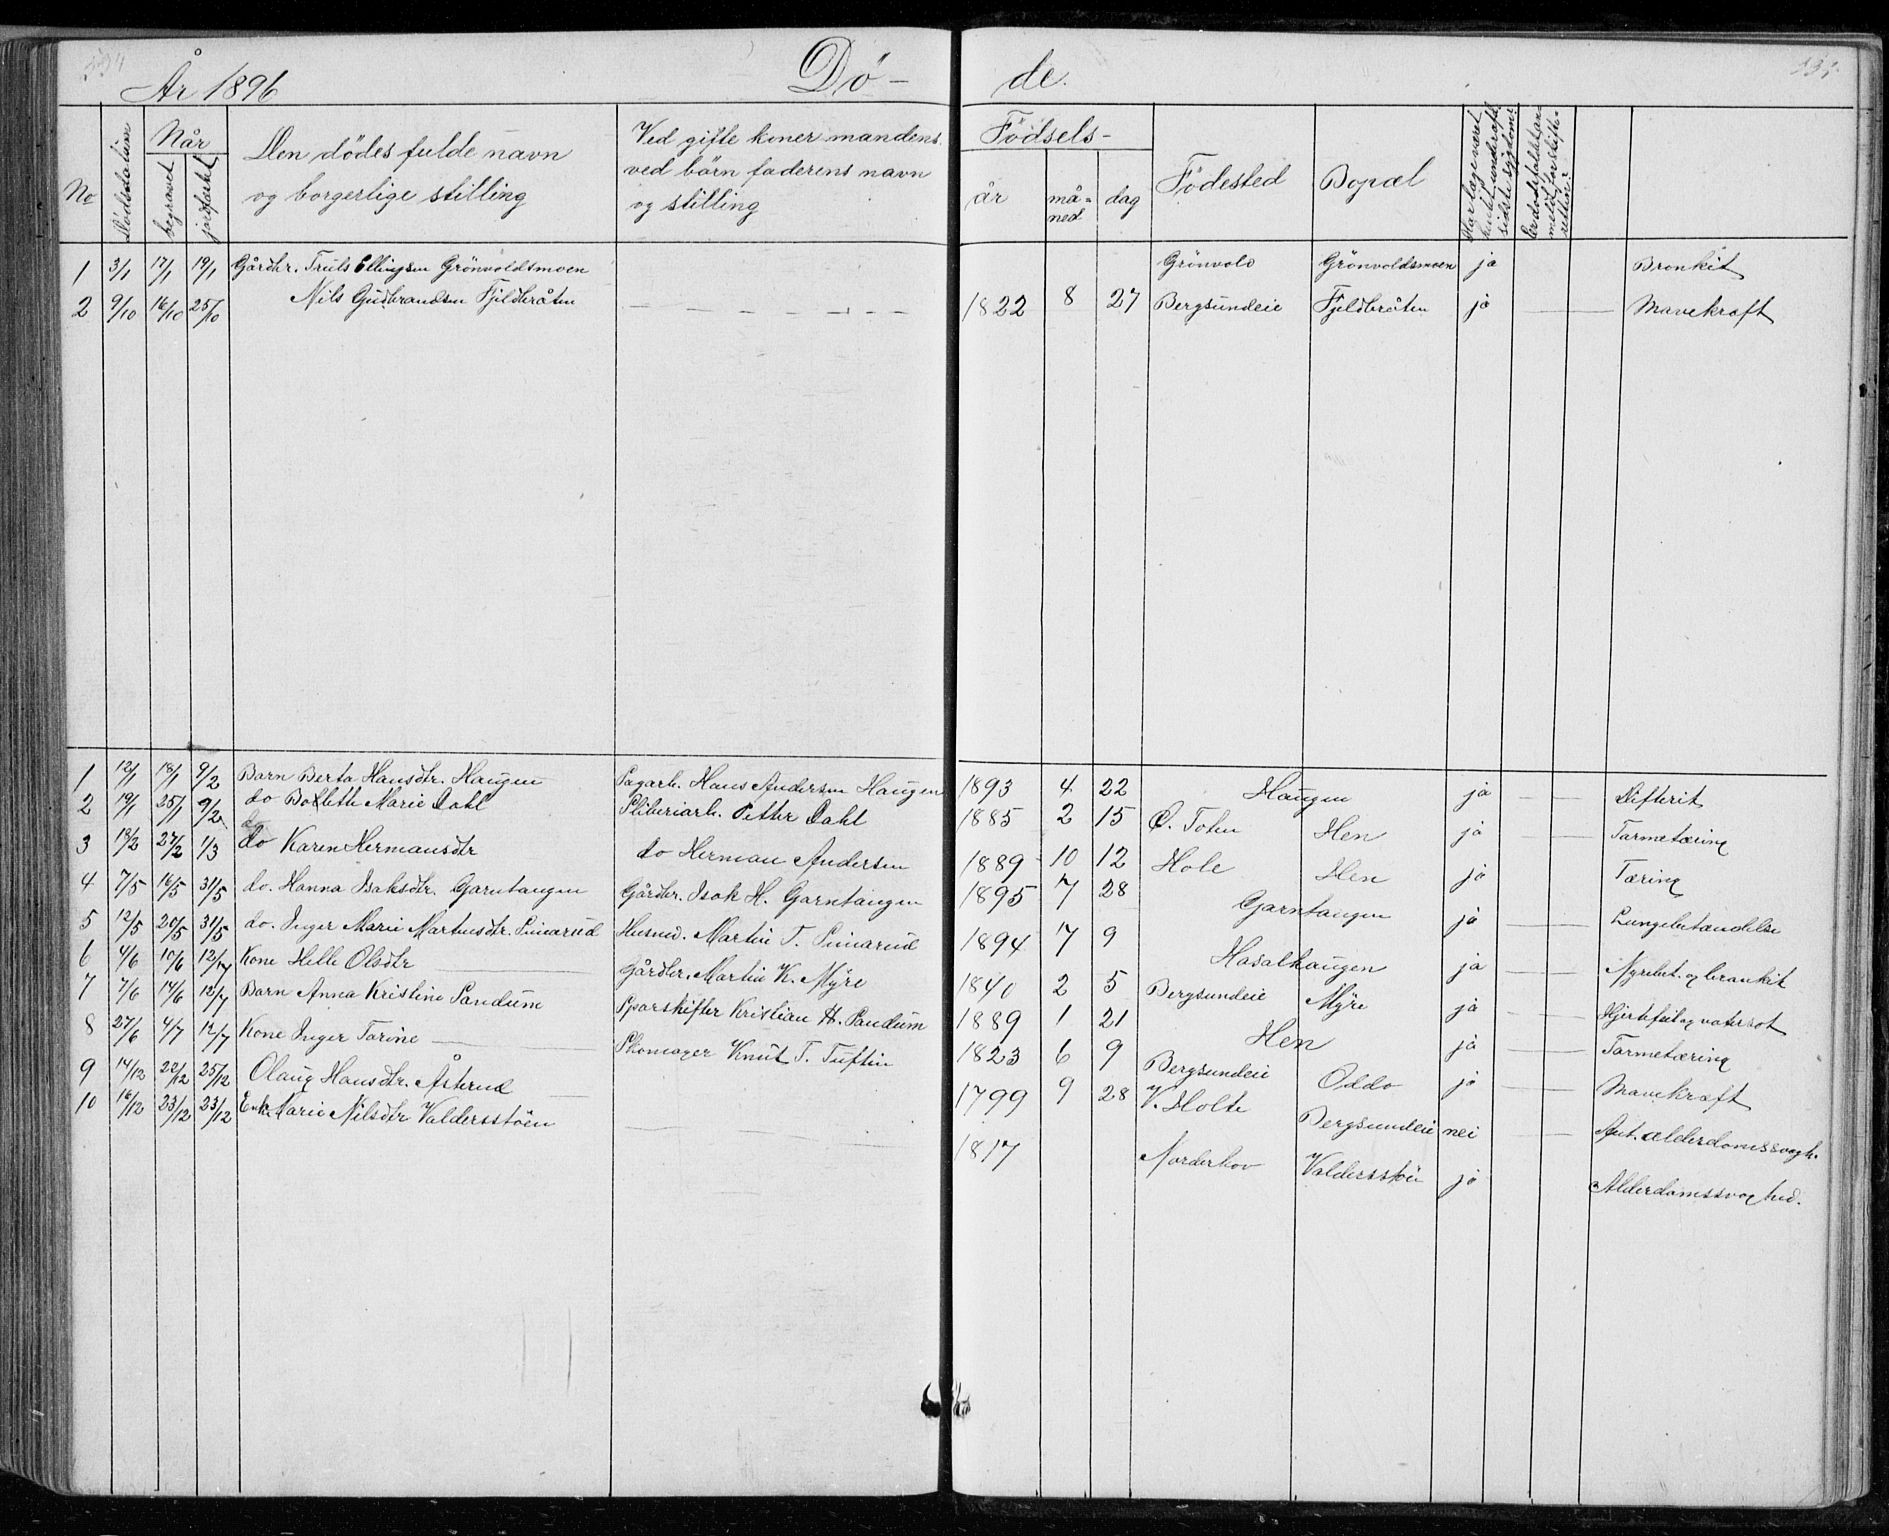 År 1896 Dø- de.
No Dødsdatum Når begravet jordfæstet Den dödes fulde navn og borgerlige stilling Ved gifte koner mandens, ved börn faderens navn og stilling Födsels- år måned dag Födested Bopæl
1 3/1 17/1 19/1 Gårdbr. Truls Ellingsen Grönvoldsmoen Grönvold Grönvoldsmoen ja Bronkit
2 9/10 16/10 25/10 Nils Gudbrandsen Fjeldbråten 1822 8 27 Bergsundeie Fjeldbråten ja Mavekræft
1 12/1 18/1 9/2 Barn Berta Hansdtr. Haugen Sagarb. Hans Andersen Haugen 1893 4 22 Haugen ja Difterit
2 19/1 25/1 9/2 do Bolleth Marie Dahl Sliberiarb. Petter Dahl 1885 2 15 Ö. Toten Hen ja Tarmetæring
3 18/2 27/2 1/3 do Karen Hermansdtr do Herman Andersen 1889 10 12 Hole Hen ja Tæring
4 7/5 16/5 31/5 do. Hanna Isaksdtr. Garntangen Gårdbr. Isak H. Garntangen 1895 7 28 Garntangen ja Lungebetændelse
5 12/5 20/5 31/5 do. Inger Marie Martinsdtr. Simarud Husmd. Martin T. Simarud 1894 7 9 Hasalhaugen ja Nyrebet. og bronkit
6 4/6 10/6 12/7 Kone Helle Olsdtr Gårdbr. Martin K. Myre 1840 2 5 Bergsundeie Myre ja Hjertefeil og vatersot
7 7/6 14/6 12/7 Barn Anna Kristine Sandum Sporskifter Kristian H. Sandum 1889 1 21 Hen ja Tarmetæring
8 27/6 4/7 12/7 Kone Inger Torine Skomager Knut T. Tuftin 1823 6 9 Bergsundeie Oddo ja Mavekræft
9 14/12 22/12 25/12 Olaug Hansdtr. Åsterud 1799 9 28 V. Holte Bergsundeie nei Ant. alderdomssvagh.
10 16/12 23/12 23/12 Enk. Marie Nilsdtr Valdersstöen 1817 Norderhov Valdersstöen ja Alderdomssvaghed.